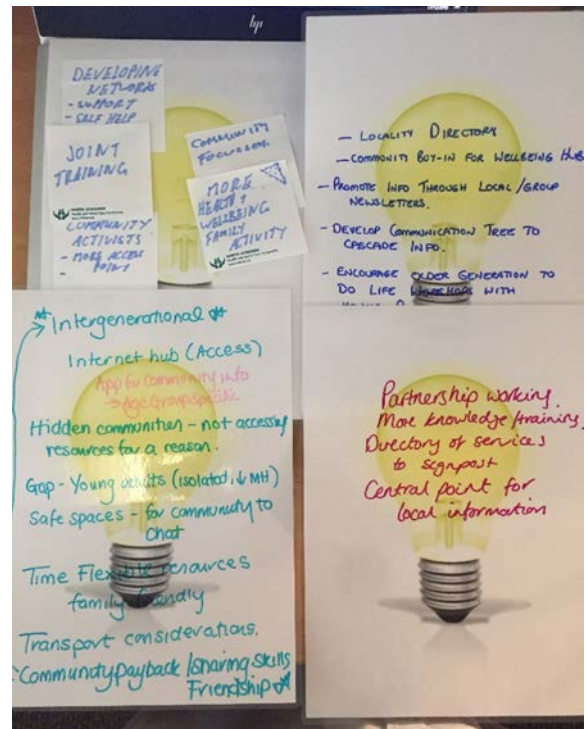 hp
DEVELOPING
NETWORKS
- SUPPORT
- SELF HELP
JOINT
TRAINING
COMMUNITY
ACTIVISTS
- MORE ACCESS
POINT
-
COMMUNITY
MORE
HEALTH &
WELLBEING
FAMILY
ACTIVITY
- LOCALITY DIRECTORY
- COMMUNITY BUY-IN FOR WELLBEING HUB
- PROMOTE INFO THROUGH LOCAL/GROUP
NEWSLETTERS.
- DEVELOP COMMUNICATION TREE TO
CASCADE INFO.
- ENCOURAGE OLDER GENERATION TO
DO LIFE WORKSHOPS WITH
Intergenerational
Internet hub (Access)
App for community info
→ Age Group Specific
Hidden communities - not accessing
resources for a reason.
Gap - Young adults (isolated, ↓ MH)
Safe spaces - for community to
chat
Time Flexible resources
family friendly
Transport considerations.
Community payback / sharing skills
Friendship
Partnership working.
More knowledge/training.
Directory of services
to signpost
Central point for
local information